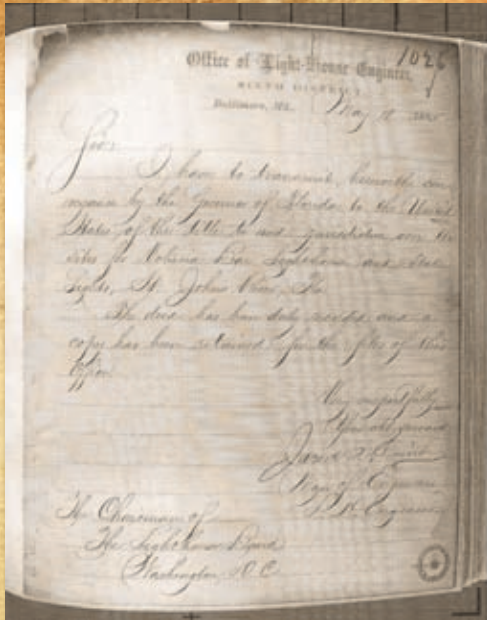 1026
Office of Light-House Engineer,
SIXTH DISTRICT
Baltimore, Md. May 12
Sir:
I have to transmit herewith con
by the Governor of Florida to the United
States of the title to and jurisdiction over the
sites for Volusia Bar Lighthouse and
Lights, St. Johns River, Fla.
The deed has been duly and a
copy has been retained for the files of this
Office
Very respectfully
Your obt servant
Jared A. Smith
of Engineers
The Chairman of
The Lighthouse Board
Washington D.C.